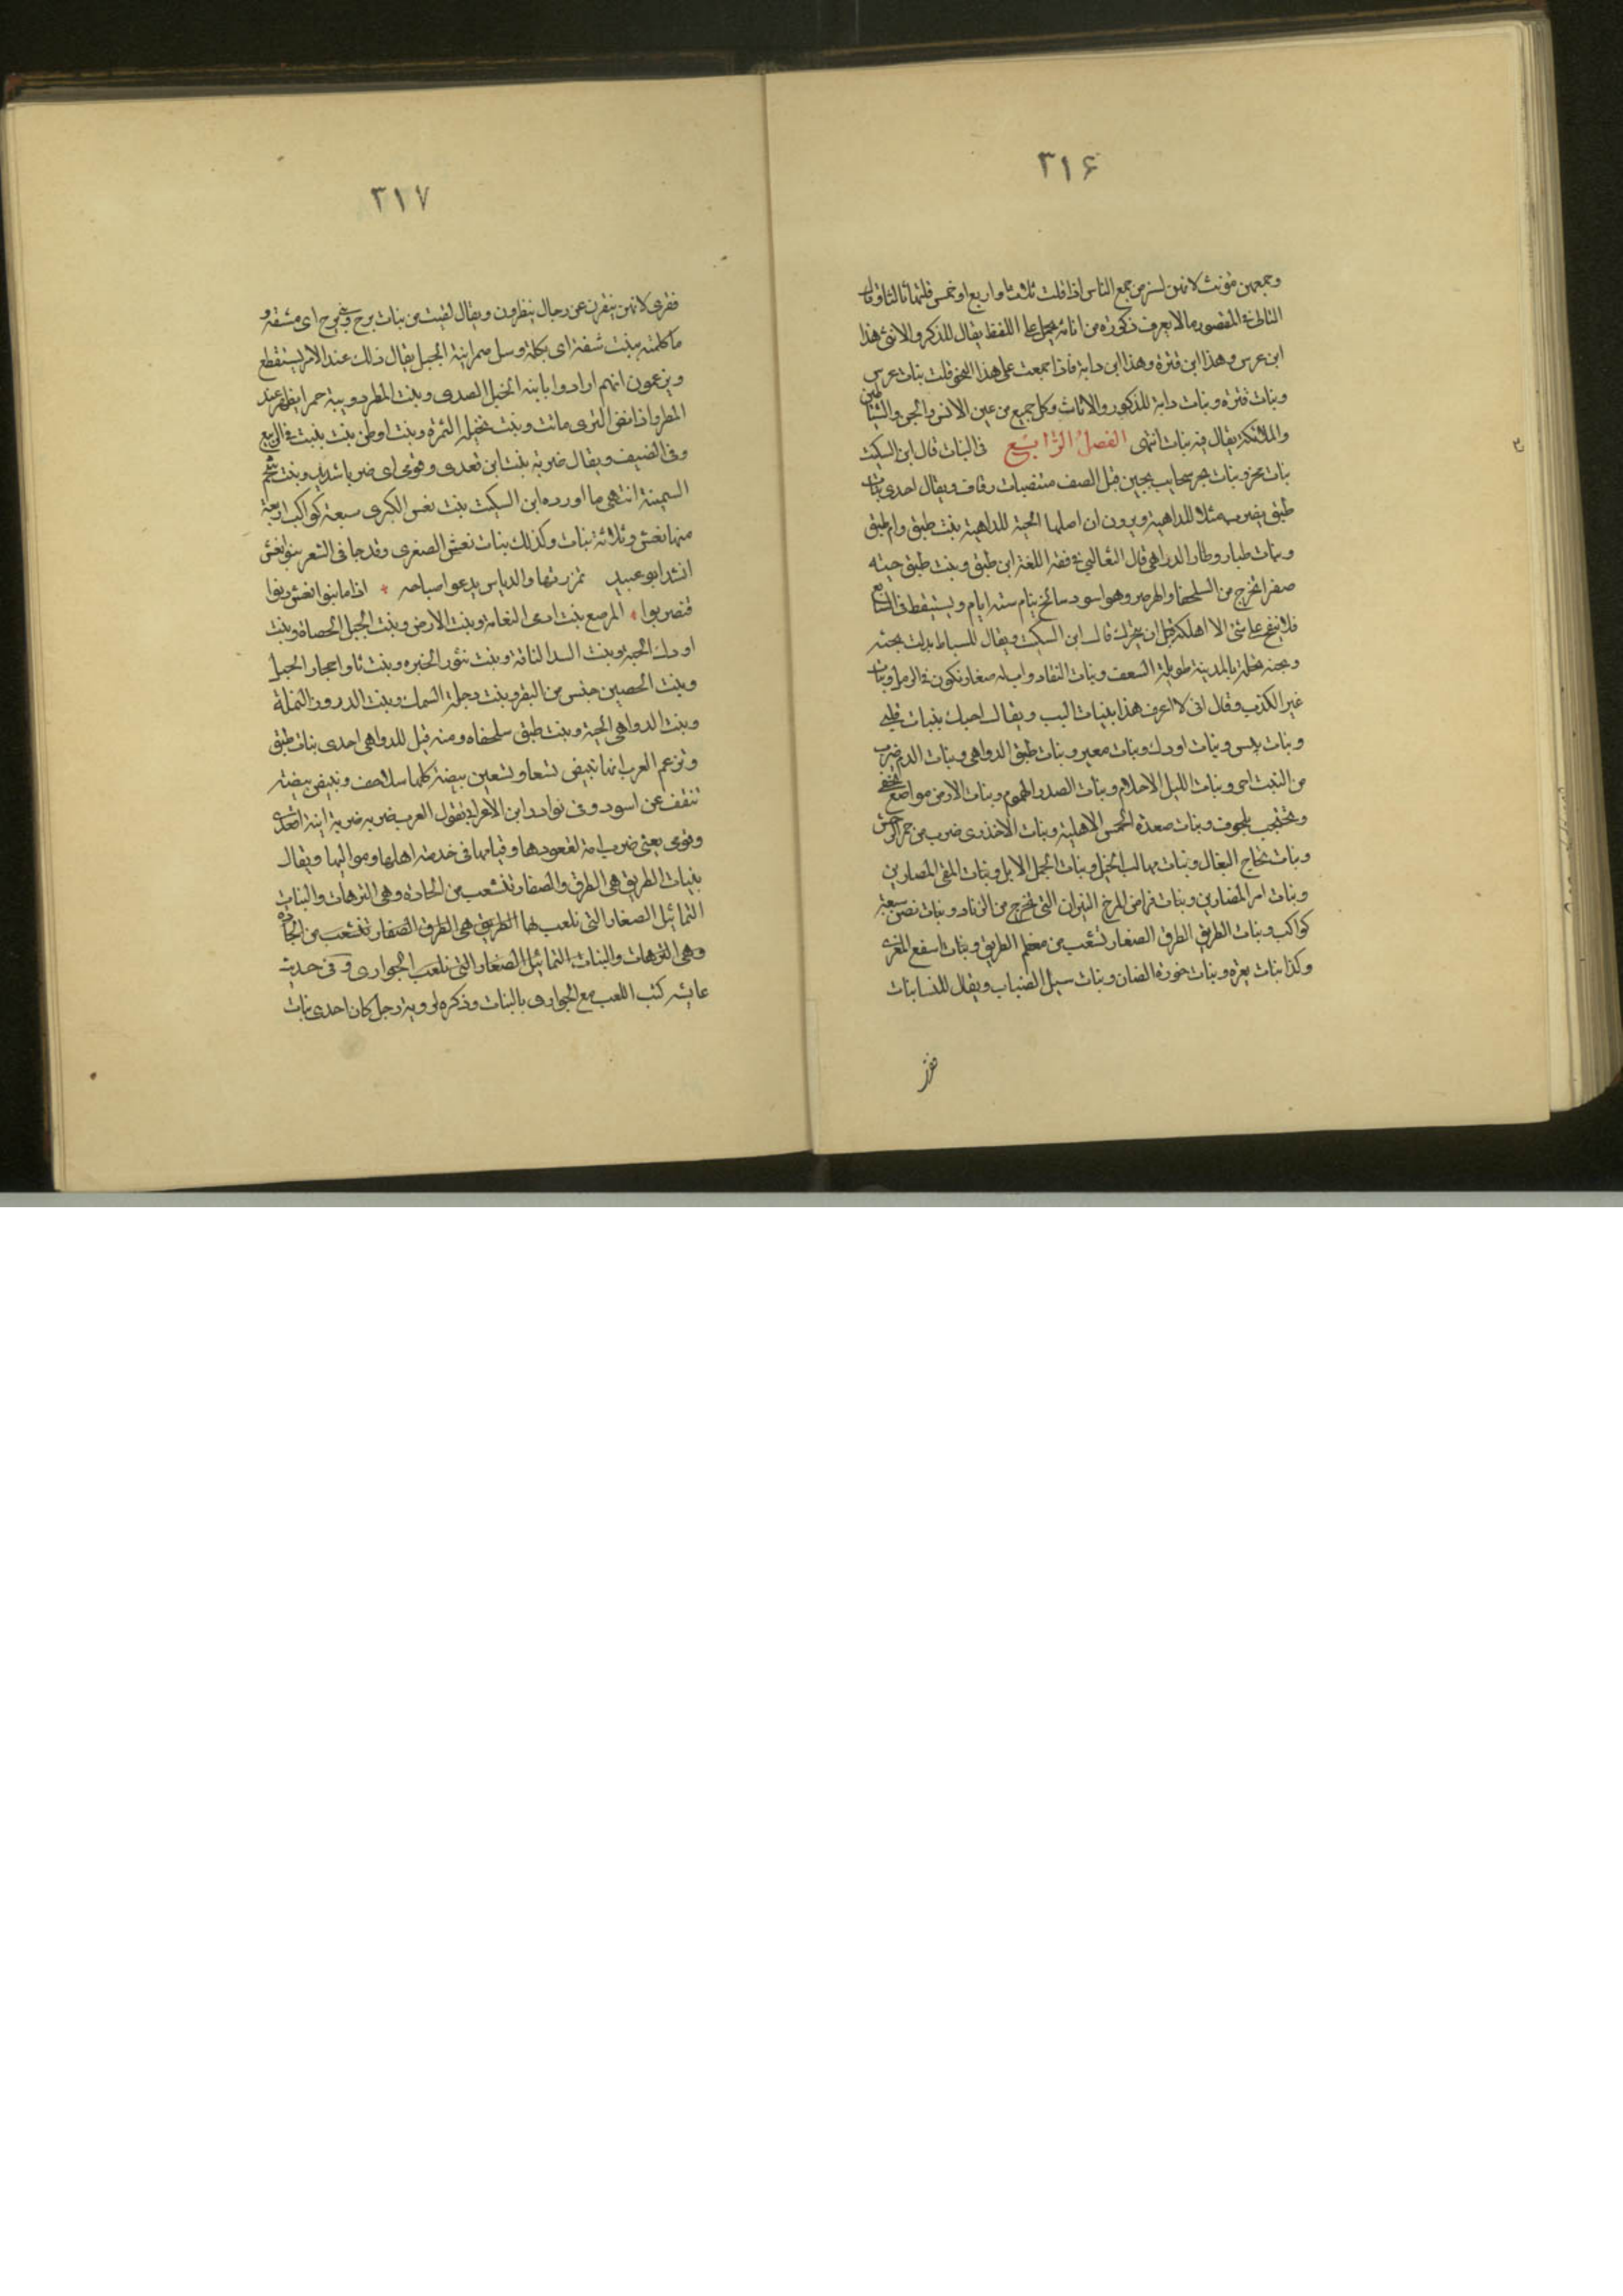 ٣١۶
وجمعهن مؤنث لانهن لسن من جمع الناس اذا قلت ثلاثا واربع او خمس قلتها بالتا وقال
القالى فى المقصور ما لا يعرف ذكوره من اناثه يحمل على اللفظ يقال للذكر والانثى هذا
ابن عرس وهذا ابن قترة وهذا ابن داية فاذا جمعت على هذا النحو قلت بنات عرس
وبنات قترة وبنات داية للذكور والاناث وكل جميع من غير الانس والجن والشياطين
والملائكة يقال فيه بنات انتهى الفصل الرابع فى البنات قال ابن السكيت
بنات مخر وبنات بحر سحايب يجين قبل الصيف منتصبات رقاق ويقال احدى بنات
طبق يضرب مثلا للداهية ويرون ان اصلها الحية للداهية بنت طبق وام طبق
وبنات طبار وطمار الدواهى قال الثعالبى فى فقه اللغة ابن طبق وبنت طبق حية
صفرا تخرج من السلحفا والهرهر وهو اسود سالخ ينام ستة ايام ويستيقظ فى السابع
فلا ينفخ على شئ الا اهلكه قبل ان يتحرك قال ابن السكيت ويقال للسياط بنات بحنه
وبحنه نخلة بالمدينة طويلة السعف وبنات النقا دواب له صغار تكون فى الرمل وبنات
غير الكذب وقال انى لا اعرف هذا ببنيات البب ويقال احبك ببنات قلبى
وبنات بيس وبنات اودك وبنات معير وبنات طبق الدواهى وبنات الدم ضرب
من النبت احمر وبنات الليل الاحلام وبنات الصدر الهموم وبنات الارض مواضع تخفى
وتحتجب بالجوف وبنات صعدة الحمر الاهلية وبنات الاخدرى ضرب من حمر الوحش
وبنات شحاج البغال وبنات صهال الخيل وبنات الجمل الابل وبنات المعى المصارين
وبنات امر المصارين وبنات من المرخ النيران التى تخرج من الزناد وبنات نعش سبعة
كواكب وبنات الطريق الطرق الصغار تشعب من معظم الطريق وبنات اسفع المغزى
وكذا بنات يعرة وبنات خورة الضان وبنات سيل الضباب ويقال للنسا بنات
نقر
٣١٧
نقرى لانهن ينقرن عن رجال ينظرون ويقال لقيت من بنات برح وبنى برح اى مشقة و
ما كلمته ببنت شفة اى بكلمة وسل صم ابنة الجبل يقال ذلك عند الامر يستفظع
ويزعمون انهم ارادوا بابنه الجبل الصدى وبنت المطر دويبة حمرا يظهر عند
المطر واذا نضى الثرى ماتت وبنت نخيلة التمرة وبنت اوطن بنت ينبت فى الربيع
وفى الصيف ويقال ضربه بنت ابن تعدى وقومى اى ضربا شديدا وبنت شحم
السمينة انتهى ما اورده ابن السكيت بنت نعش الكبرى سبعة كواكب اربعة
منها نعش وثلاثة بنات وكذلك بنات نعش الصغرى وقد جا فى الشعر بنوا نعش
انشد ابو عبيد تمززتها والديك يدعوا صباحه * اذا ما بنوا نعش دنوا
فتصوبوا * المرصع بنت ادحى النعامة وبنت الارض وبنت الجبل الحصاة وبنت
اودك الحية وبنت البدا الناقة وبنت تنور الخبزة وبنت ثاوا حجار الجبل
وبنت الحصين جنس من البقر وبنت دجلة السمك وبنت الدرور النملة
وبنت الدواهى الحية وبنت طبق سلحفاه ومنه قيل للدواهى احدى بنات طبق
وتزعم العرب انها تبيض تسعا وتسعين بيضة كلها سلاحف وتبيض بيضة
تنقف عن اسود وفى نوادر ابن الاعرابى تقول العرب ضربه ضربة ابنة اقعدى
وقومى يعنى ضرب امة لقعودها وقيامها فى خدمة اهلها ومواليها ويقال
بنيات الطريق هى الطرق والصغار تتشعب من الجادة وهى الترهات والبنات
التماثيل الصغار التى تلعب لها الطريق هى الطرق الصغار تتشعب من الجادة
وهى الترهات والبنات التماثيل الصغار التى تلعب الجوارى وفى حديث
عايشه كنت اللعب مع الجوارى بالبنات وذكره لروية رجل كان احدى بنات